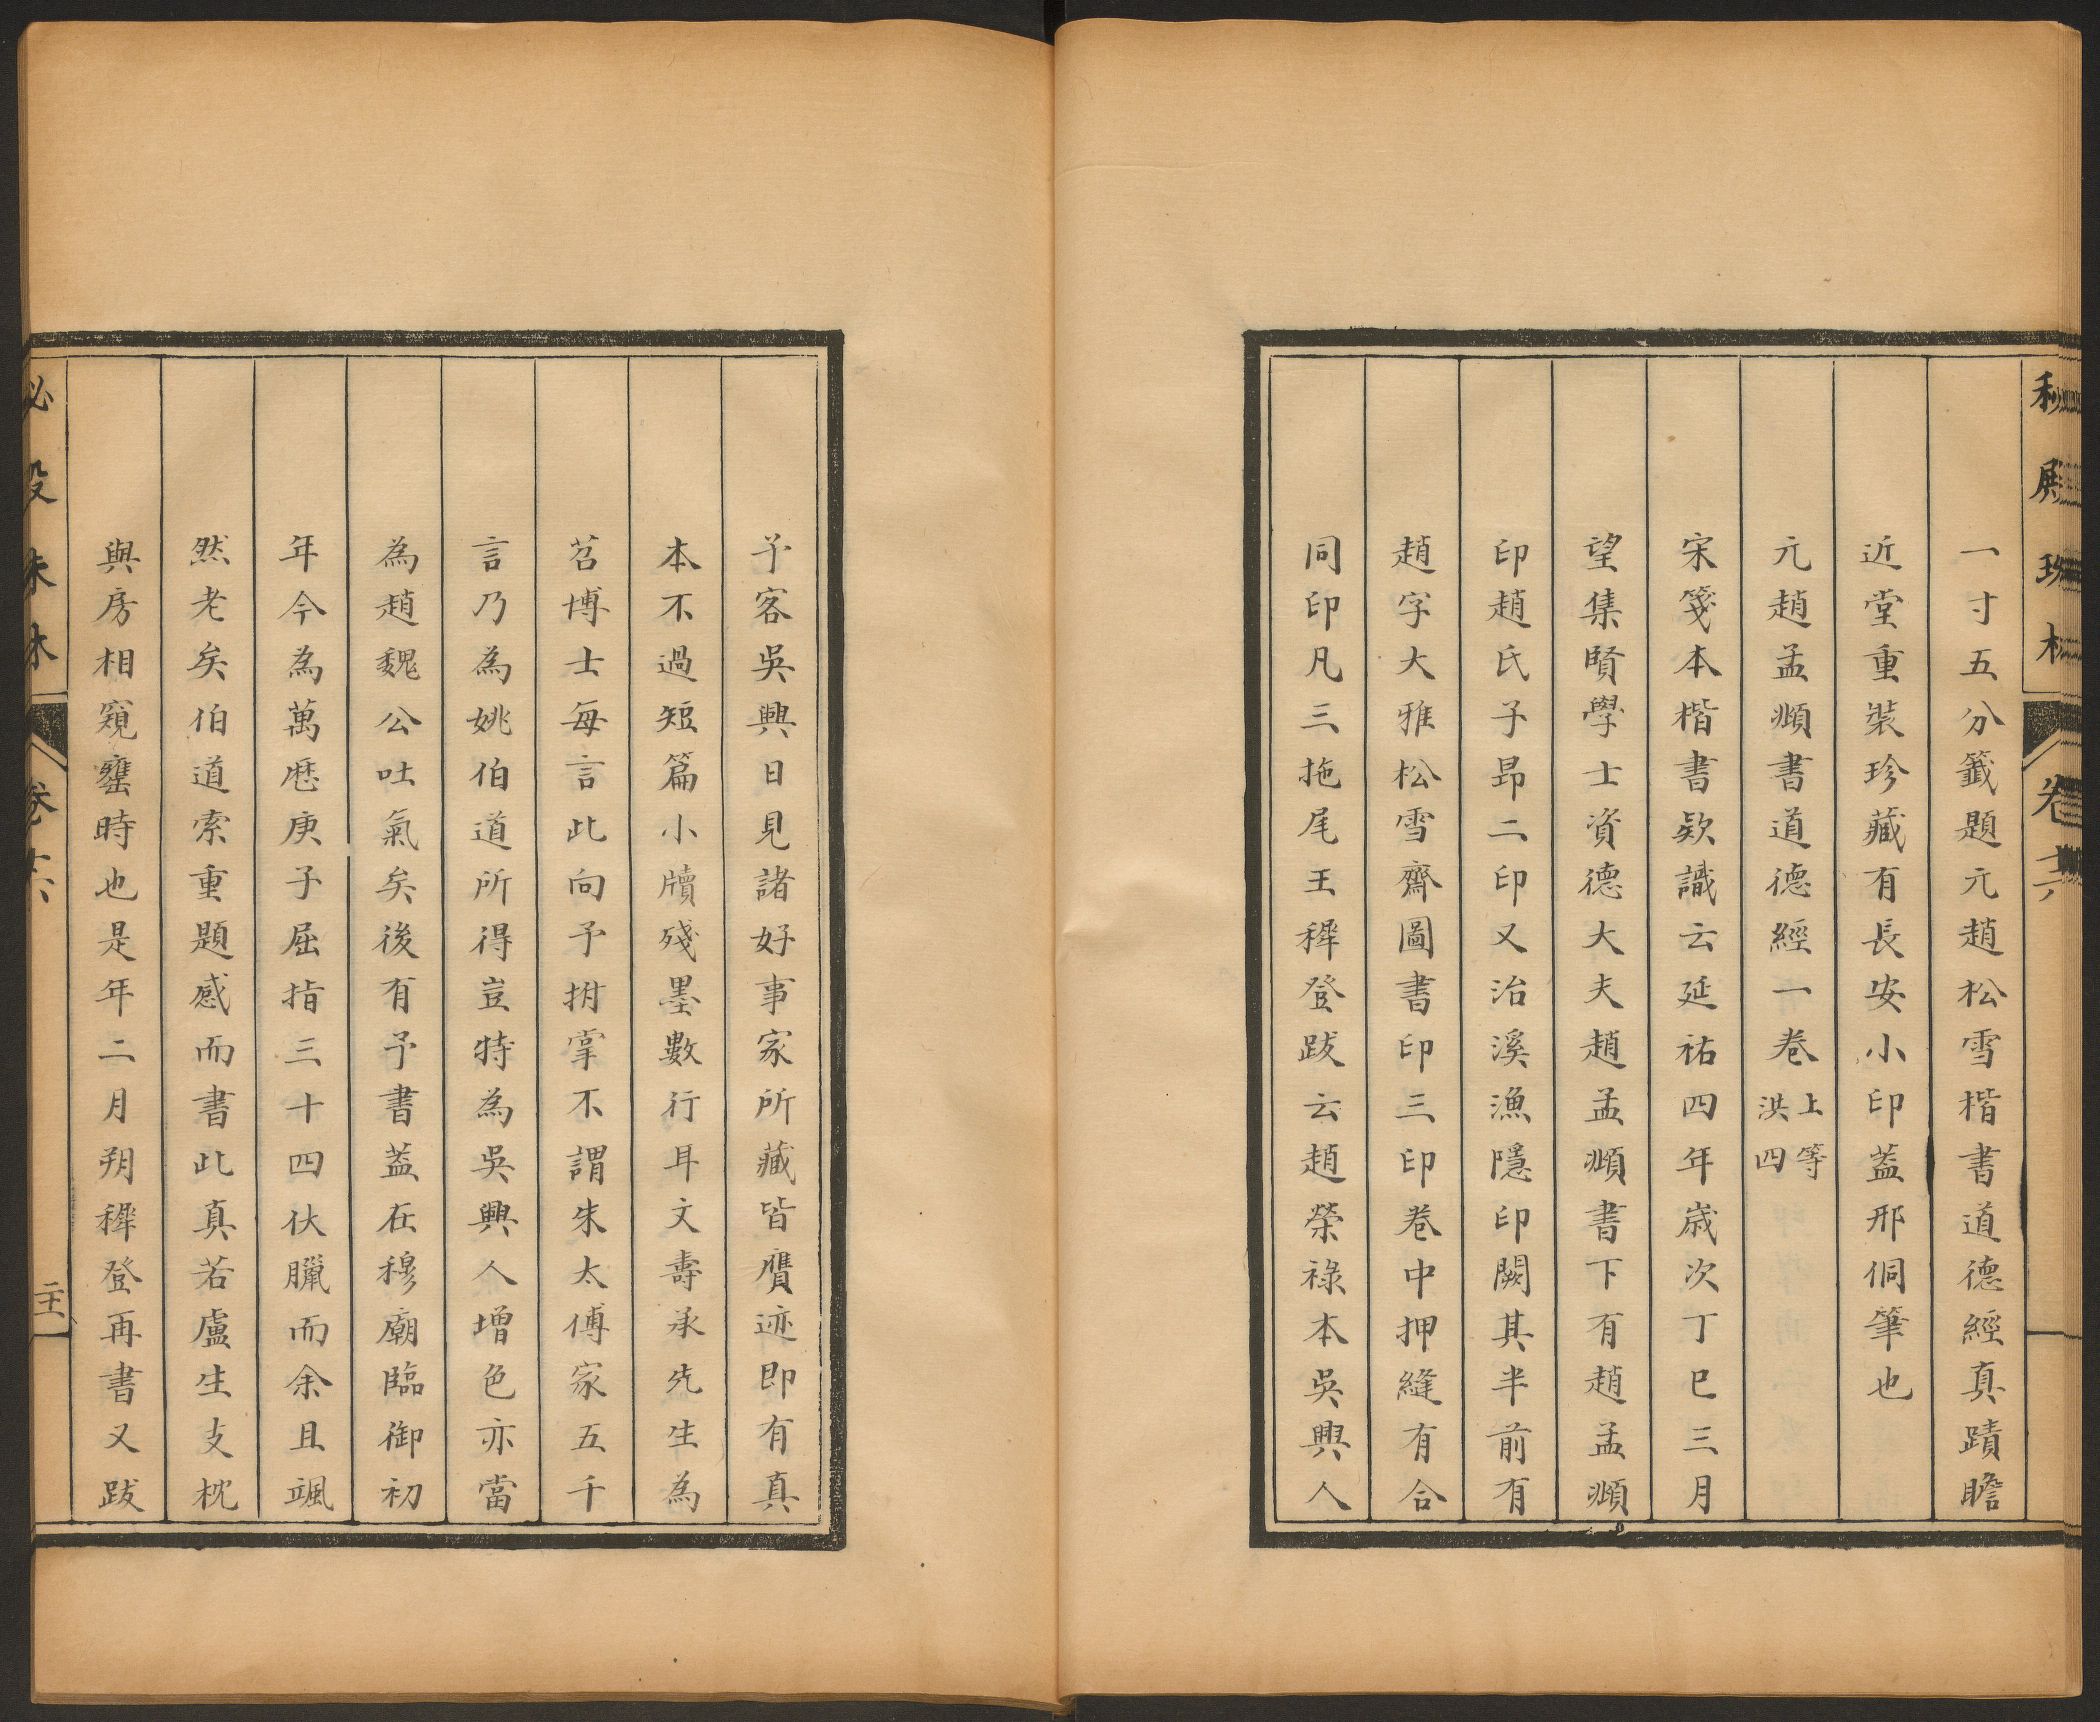 卷十六
一寸五分籤題元趙松雪楷書道德經真蹟瞻
近堂重裝珍藏有長安小印蓋邢侗筆也
元趙孟頫書道德經一卷 上等 洪四
宋箋本楷書欵識云延祐四年歲次丁巳三月
望集賢學士資德大夫趙孟頫書下有趙孟頫
印趙氏子昂二印又治溪漁隱印闕其半前有
趙字大雅松雪齋圖書印三印卷中押縫有合
同印凡三拖尾王穉登跋云趙榮祿本吳興人
予客吳興日見諸好事家所藏皆贋迹即有真
本不過短篇小牘殘墨數行耳文壽承先生為
苕博士每言此向予拊掌不謂朱太傅家五千
言乃為姚伯道所得豈特為吳興人增色亦當
為趙魏公吐氣矣後有予書蓋在穆廟臨御初
年今為萬厯庚子屈指三十四伏臘而余且颯
然老矣伯道索重題感而書此真若盧生支枕
與房相窺罋時也是年二月朔穉登再書又跋
卷十六